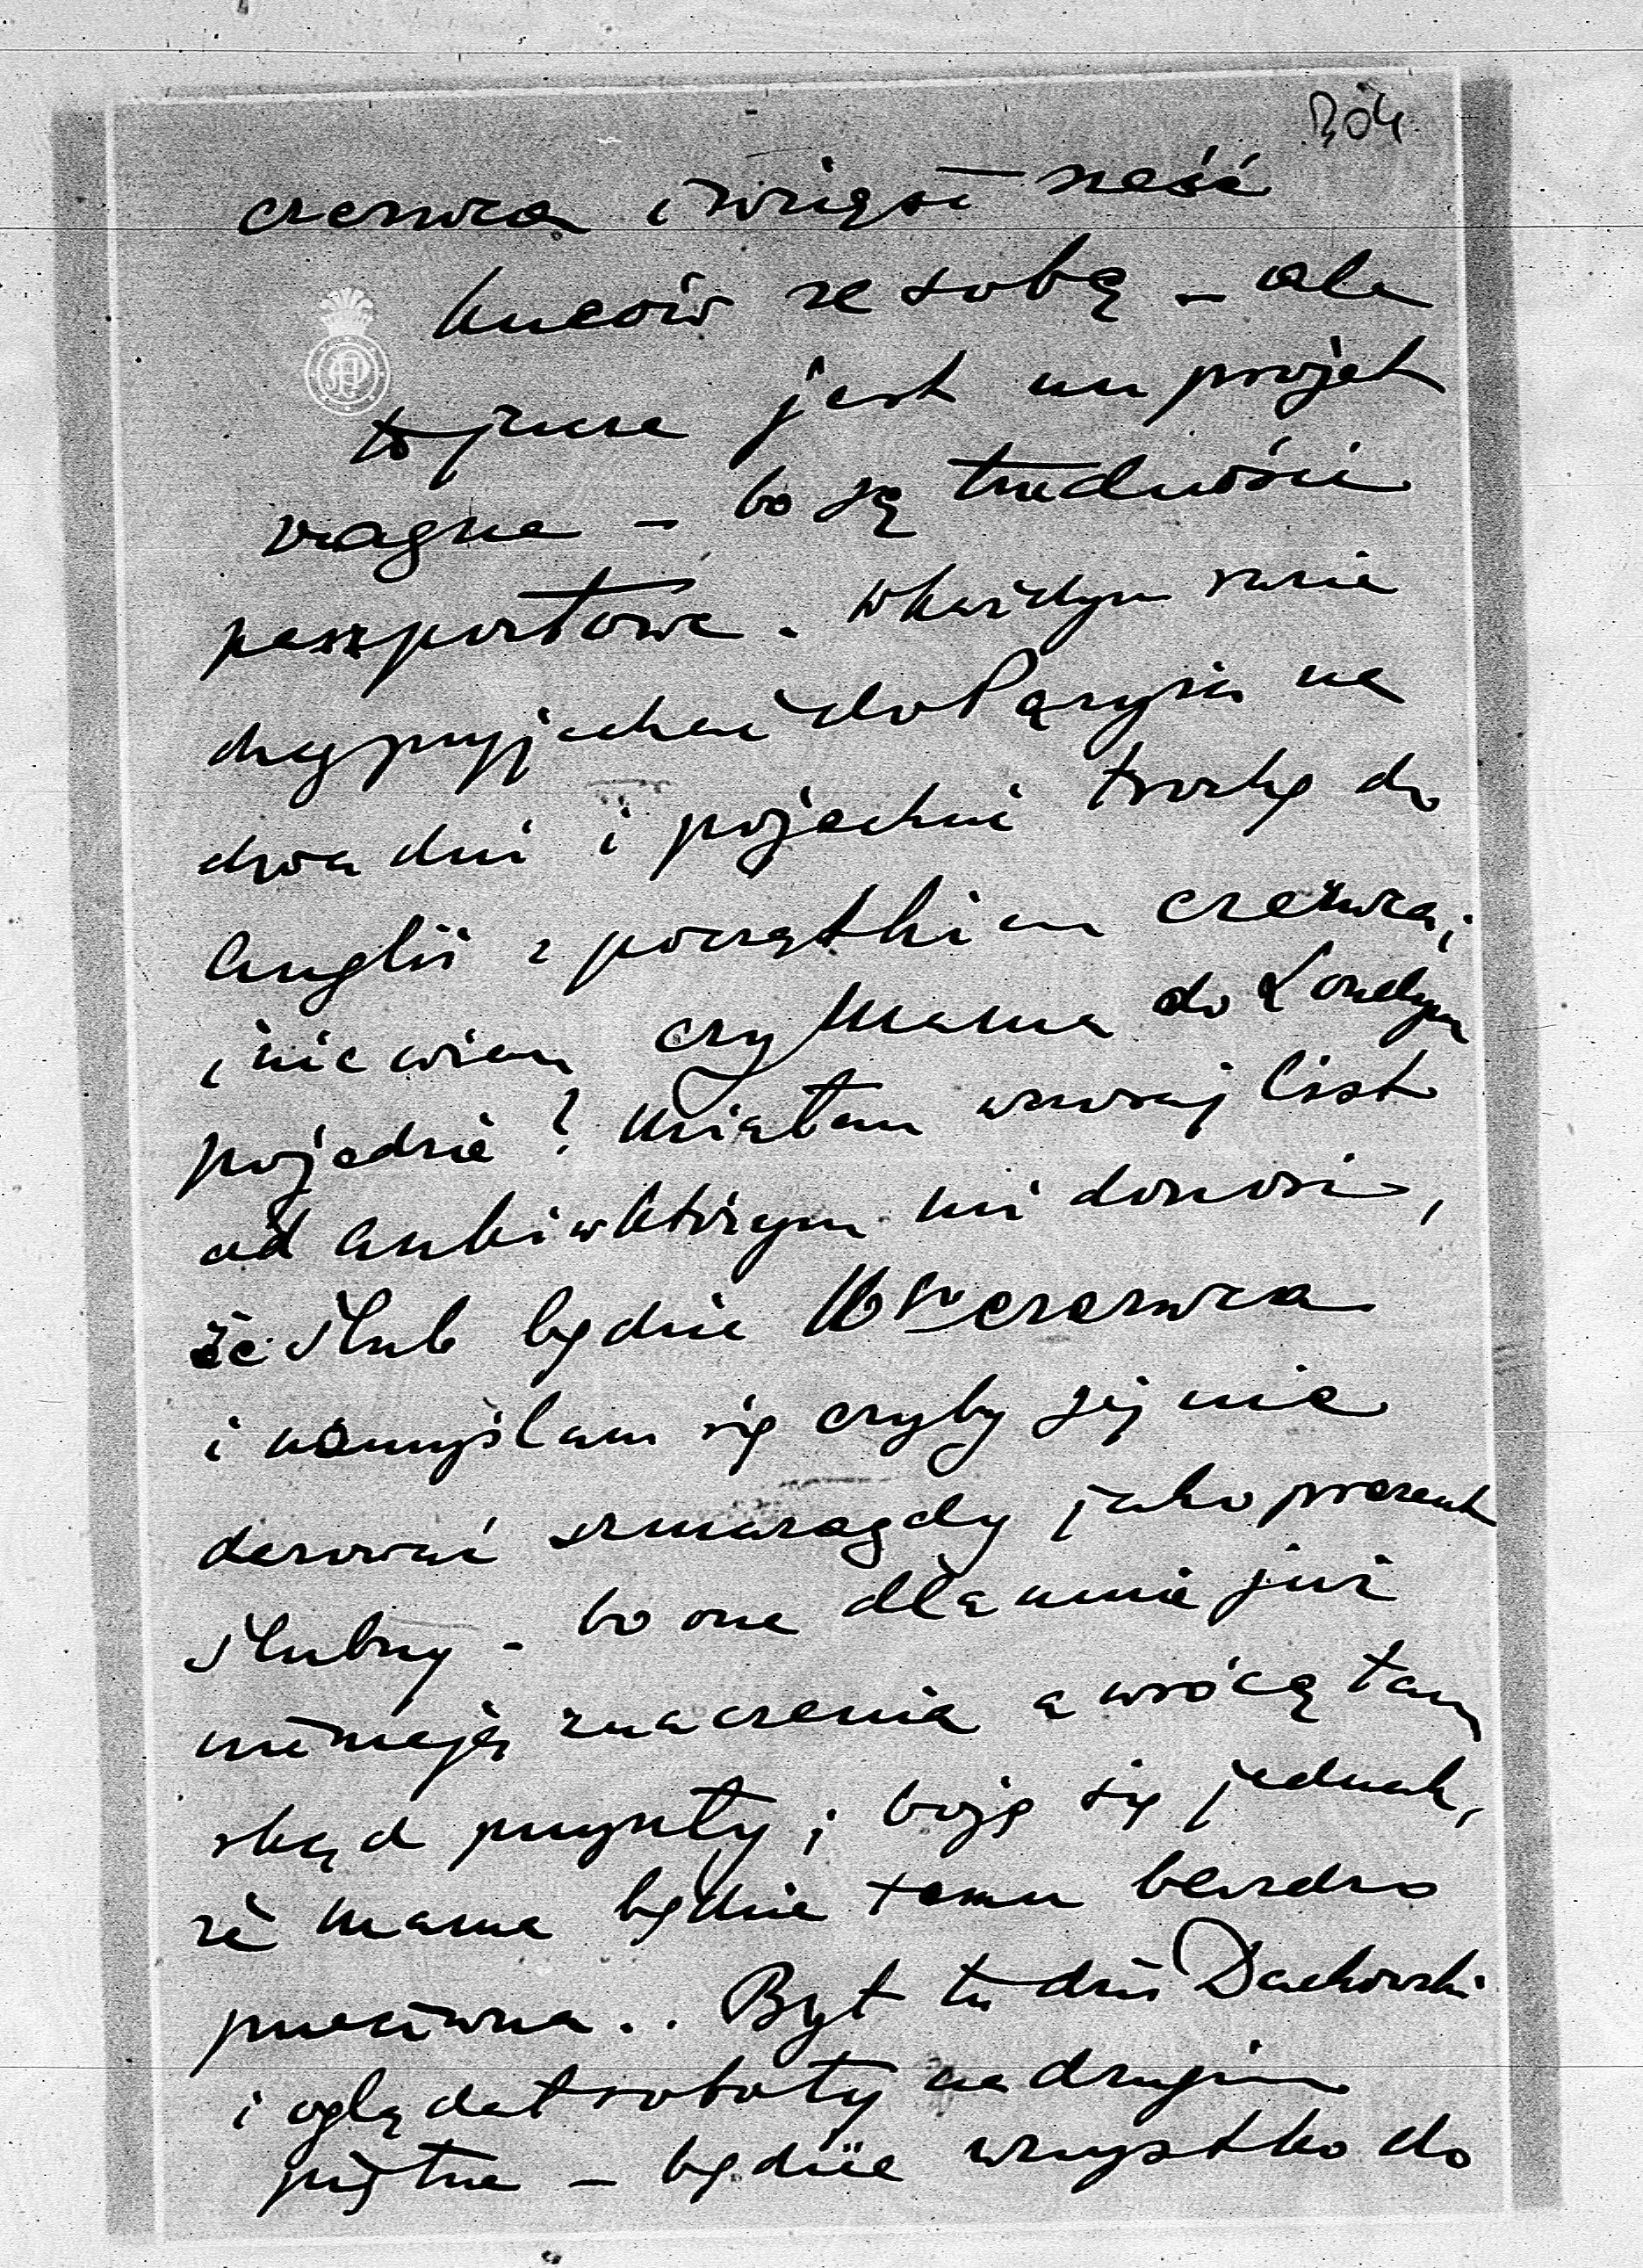 304
czerwca i wziąść sześć
kuców ze sobą – ale
to jeszcze jest un projet
vague – bo są trudności
paszportowe. W każdym razie
chcę przyjechać do Paryża na
dwa dni i pojechać trochę do
Anglii z początkiem czerwca;
i nie wiem czy Mama do Londynu
pojedzie? Miałam wczoraj list
od Anki w którym mi donosi,
że ślub będzie 16go czerwca
i namyślam się czyby jej nie
darować szmaragdy jako prezent
ślubny – bo one dla mnie już
nie mają znaczenia a wrócą tam
skąd przyszły; boję się jednak,
że Mama będzie temu bardzo
przeciwna.. Był tu dziś Dachowski
i oglądał roboty na drugim
piętrze – będzie wszystko do